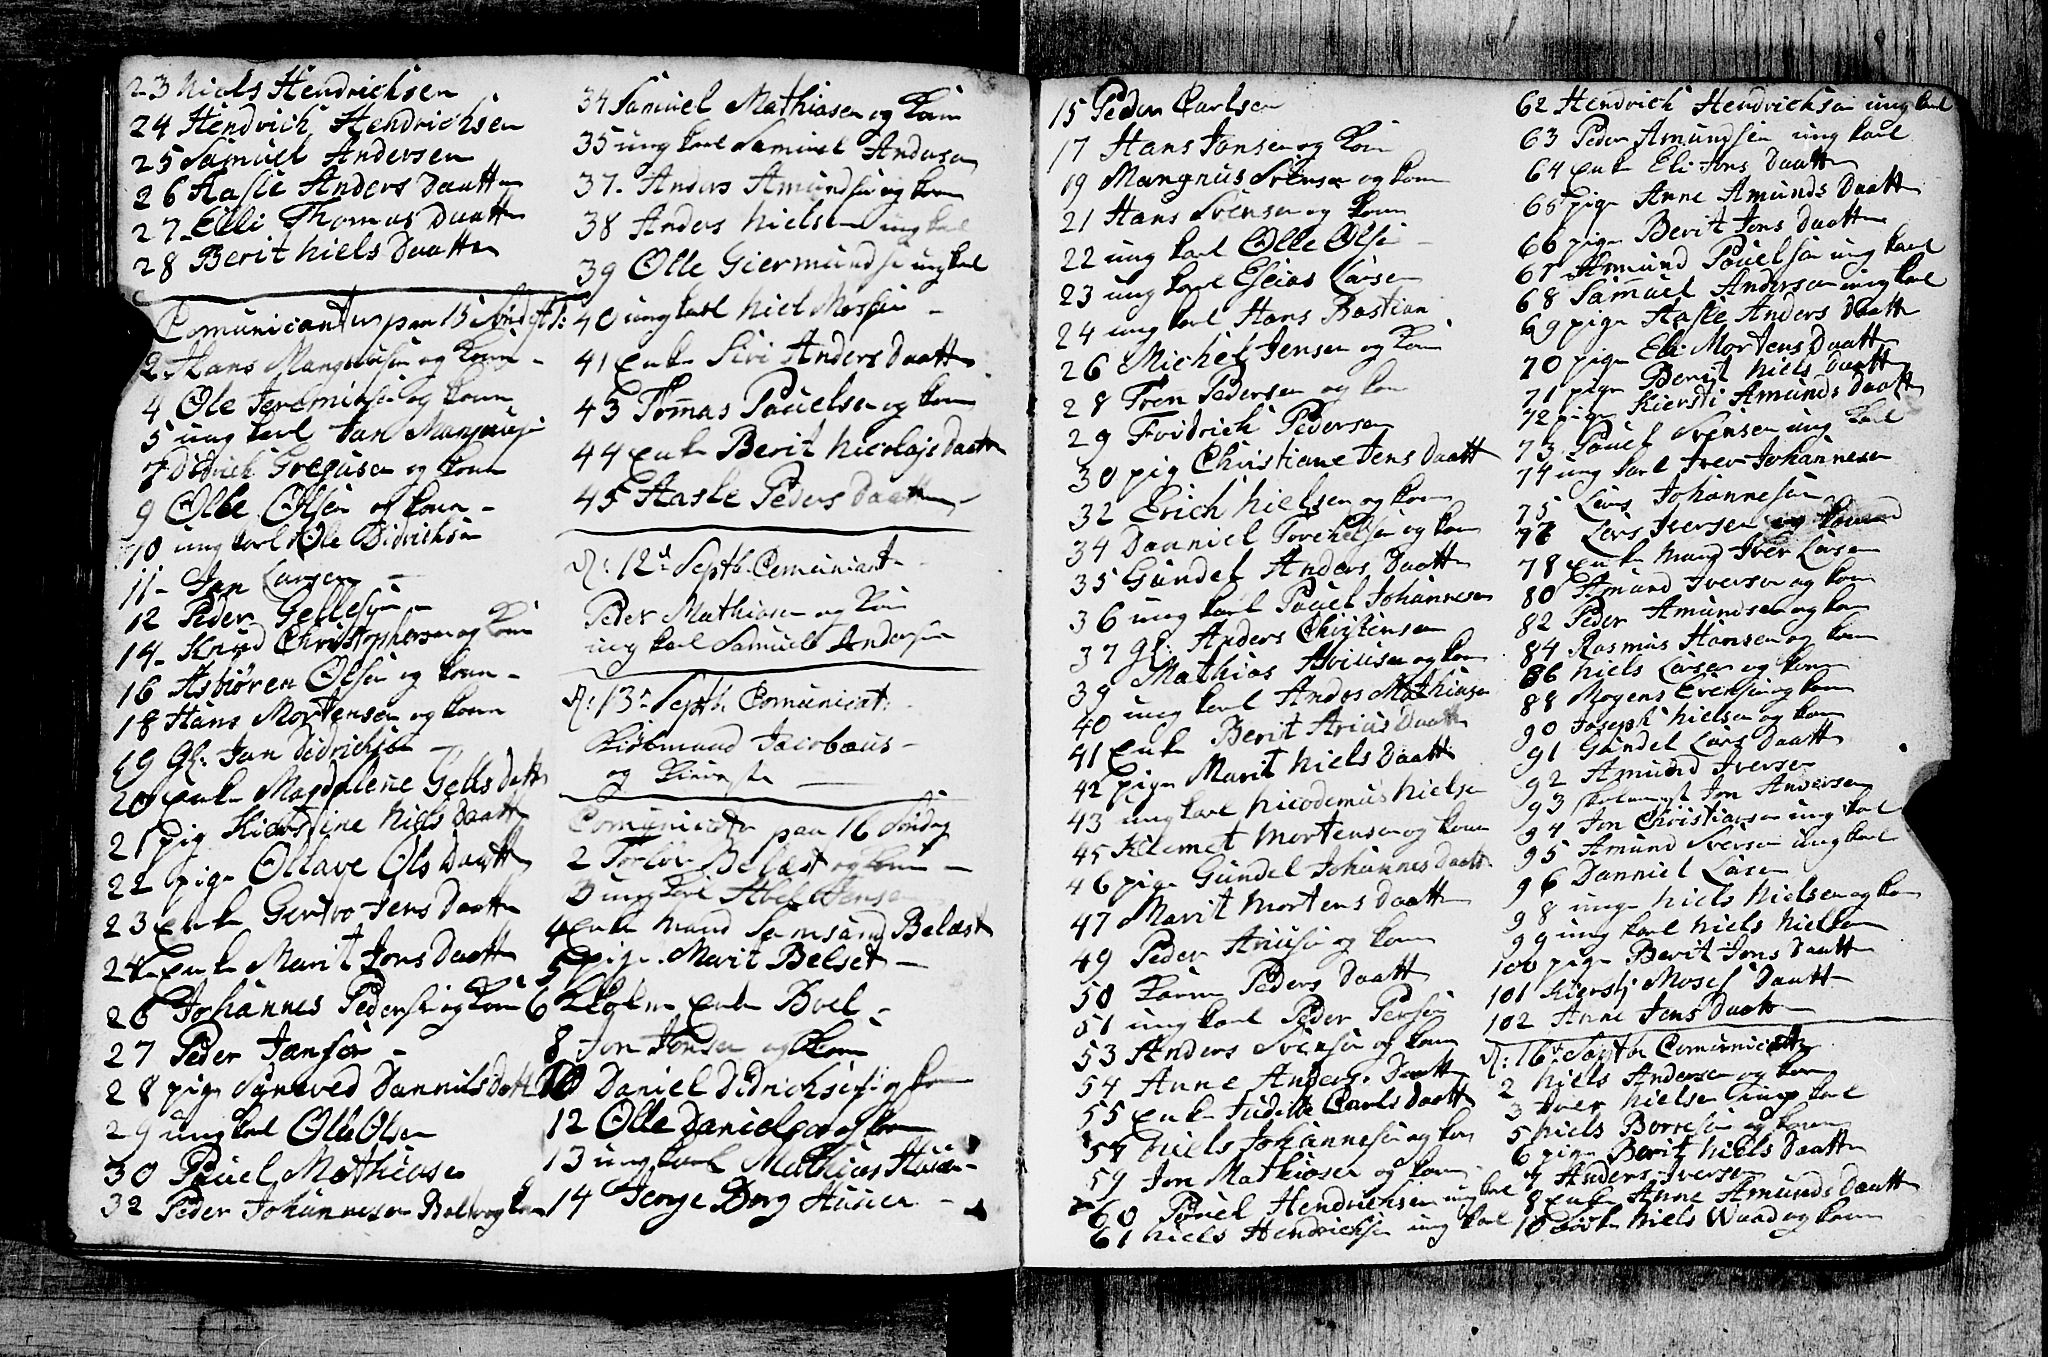 23 Niels Hendrichsen
24 Hendrich Hendrichsen
25 Samuel Andersen
26 Aasle Anders Daatt
27 Elli Thomas Daatt
28 Berit Niels Daatt
Comunicanter paa 15
2 Hans Mangnusen og Kone
4 Ole Jeremiasen og kone
5 ung karl Jan Mangnusen
7 Didrich Gregusen og kone
9 Olle Olsen og kone
10 ung karl Ole Didrichsen
11 Jan Larsen
12 Peder Gellesen
14 Knud Christophersen og kone
16 Asbiören Olsen og kone
18 Hans Mortensen og kone
19 Gl. Jan Didrichsen
20 Enke Magdalene Gells Datt
21 pig Kierstine Niels Daatt
22 pige Ollave Ols Daatt
23 Enke Gertro Jens Daatt
24 Enke Marit Jons Daatt
26 Johannes Pedersen og kone
27 Peder Jansen
28 pige Sÿneved Dannils Datt
29 ung karl Olle Olsen
30 Pouel Mathiasen
32 Peder Johannesen og kone
34 Samuel Mathiasen og Kone
35 ung karl Samuel Andersen
37 Anders Amundsen og kone
38 Anders Nielsen ung karl
39 Olle Giermundsen ung karl
40 ung karl Niel Mossen
41 Enke Siri Anders Daatt
43 Tomas Pouelsen og kone
44 Enke Berit Nicolajs Daatt
45 Aasle Peders Daatt
d: 12 Septb. Comunicant
Peder Mathiasen og Kone
ung karl Samuel Andersen
d: 13 Septb. Comunicat:
Kiöbmand Jacobæus
og Kiereste
Comunicanter paa 16 Söndag
2 Torlov Belæst og kone
3 ung karl Abel Jensen
4 Enke Mand Samsand Belæst
5 pige Marit Belset
6 Enke Boel
8 Jon Jonsen og kone
10 Daniel Didrichsen og kone
12 Olle Danielsen og kone
13 ung karl Mathias
14 Jørge Dorg
15 Peder Carlsen
17 Hans Jansen og kone
19 Mangnus Svensen og kone
21 Hans Svensen og kone
22 ung karl Olle Olsen
23 ung karl Esaias Larsen
24 ung karl Hans Bastian
26 Michel Jensen og kone
28 Iren Pedersen og kone
29 Fridrich Pedersen
30 pig Christiane Jens Daatt
32 Erich Nielsen og kone
34 Danniel Torchelsen og kone
35 Gundel Anders Daatt
36 ung karl Pouel Johannesen
37 gl. Anders Christensen
39 Mathias Ariusen og kone
40 ung karl Anders Mathiasen
41 Enke Berit Arius Daatt
42 pige Marit Niels Daatt
43 ung karl Nicodemus Nielsen
45 Klemet Mortensen og kone
46 pige Gundel Johannes Daatt
47 Marit Mortens Daatt
49 Peder Ariusen og kone
50 Karen Peders Daatt
51 ung karl Peder Persen
53 Anders Svensen og kone
54 Anne Anders Daatt
55 Enke Judithe Carls Daatt
57 Niels Johannesen og kone
59 Jon Mathiasen og kone
60 Pouel Hendrichsen ung karl
61 Niels Hendrichsen ung karl
62 Hendrich Hendrichsen ung karl
63 Peder Amundsen ung karl
64 Enke Eli Jons Daatt
65 pige Anne Amunds Daatt
66 pige Berit Jons Daatt
67 Amund Pouelsen ung karl
68 Samuel Andersen ung karl
69 pige Aasle Anders Daatt
70 pige Eli Mortens Daatt
71 pige Berit Niels Daatt
72 pige Kiersti Amunds Daatt
73 Pouel Svensen ung karl
74 ung karl Iver Johannesen
75 Lars Johannesen
77 Lars Iversen og kone
78 Enke Mand Iver Larsen
80 Amund Iversen og kone
82 Peder Amundsen og kone
84 Rasmus Hansen og kone
86 Niels Larsen og kone
88 Mogens Erensen og kone
90 Joseph Nielsen og kone
91 Gundel Lars Daatt
92 Amund Iversen
93 Jon Andersen
94 Jon Christiansen ung karl
95 Amund Iversen ung karl
96 Danniel Larsen
98 unge Niels Nielsen og kone
99 ung karl Niels Nielsen
100 pige Berit Jons Daatt
101 Kiersti Moses Daatt
102 Anne Jens Daatt
d: 16 Septbr Comunicatt
2 Niels Andersen og kone
3 Iver Nielsen ung karl
5 Niels Borresen og kone
6 pige Berit Niels Daatt
7 Anders Iversen
8 Enke Anne Amunds Daatt
10 Niels Waad og kone